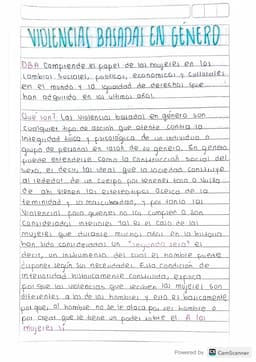 VIOLENCIAS BASADAS EN GÉNERO
DBA Comprende el papel de las mujeres en los
cambios sociales, políticos, económicos y culturales
en el mundo y la igualdad de derechos que
han adquirido en los últimos años.
Qué son? Las violencias basadas en género son
cualquier tipo de acción que atente contra la
integridad física y psicológica de un individuo o
grupo de personas en razón de su género. En género
puede entenderse como la construcción social del
sexo, es decir, las ideas que la sociedad construye
al rededor de un cuerpo por tener
de ahí vienen los estereotipos acerca de la
feminidad y la masculinidad, y por tanto las
violencias para quienes no los cumplen o son
considerados inferiores. Tal es el caso de las
mujeres que durante muchos años en la historia
han sido consideradas un "segundo sexo" es
decir, un instrumento del cual el hombre puede
disponer según sus necesidades. Esta condición de
inferioridad históricamente construida, explica
por que las violencias que reciben las mujeres son
diferentes a las de los hombres y esto es básicamente
por que, al hombre no se le ataca por ser hombre o
por creer que se tiene un poder sobre él. A las
mujeres sí.
Powered by CS CamScanner